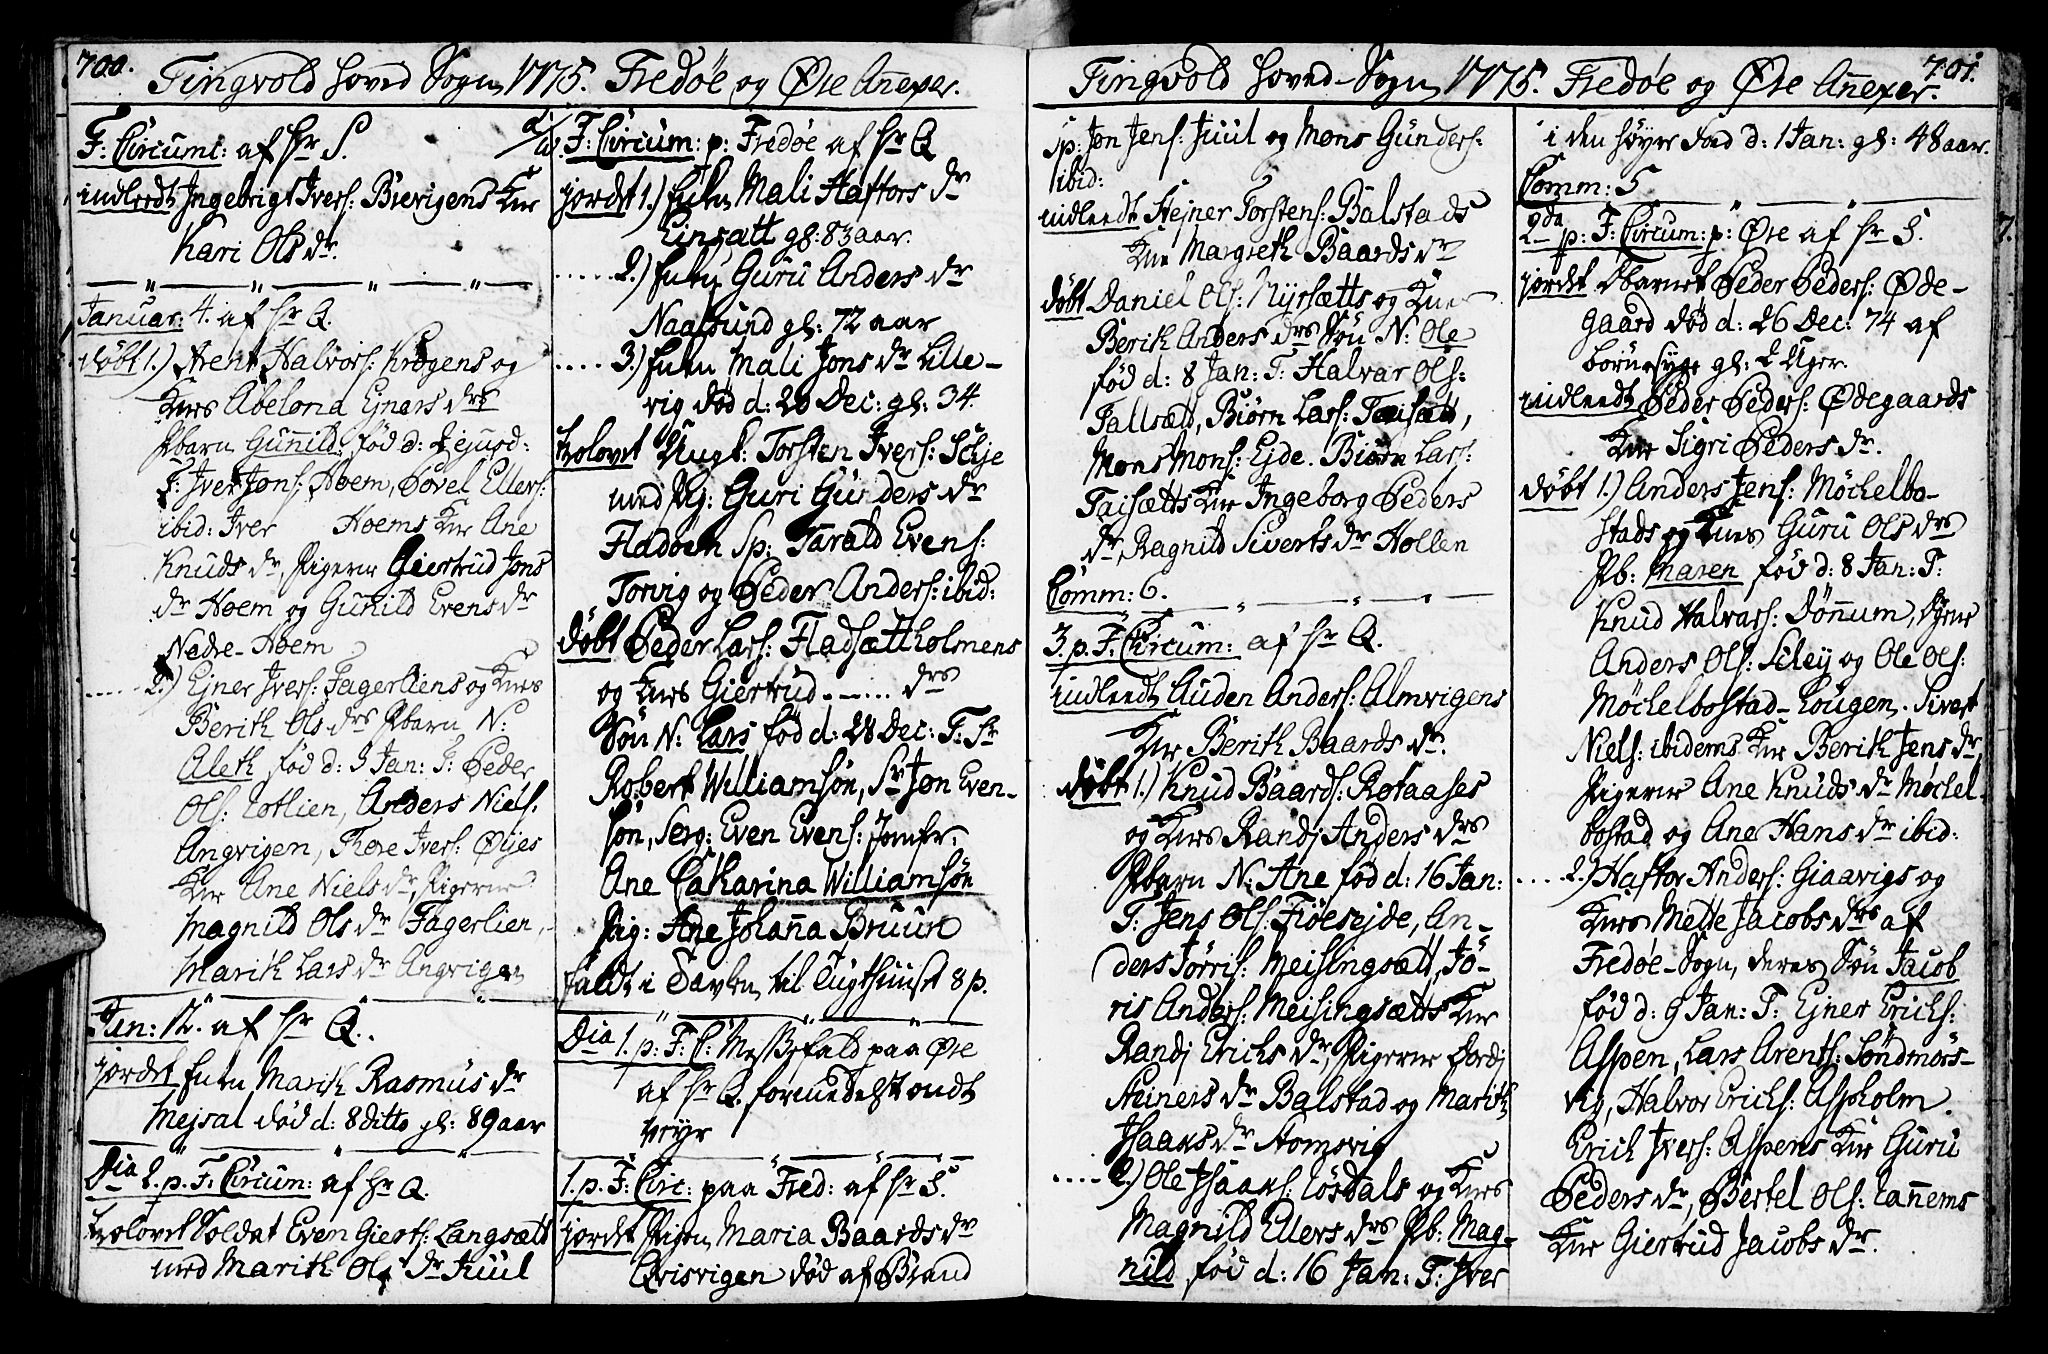 700.
Tingvold hoved Sogn 1775. Fredøe og Øre Anexer.
F. Circumc: af Hr S.
indleedt Ingebrigt Ivers: Brevigens Kne
Kari Ols dr.
Januar: 4. af Hr Q.
døbt 1.) Arent Halvors: Krogens og
Knes Abelona Ejnars drs
Pbarn Gunild, fød d:
T: Iver Jons: Hoem, Povel Ellers:
ibid: Iver Hoems Kne Ane
Knuds dr, Pigerne Giertrud Jons
dr Hoem og Gunild Evens dr
Nedre-Hoem
2.) Ejner Ivers: Fagerliens og Knes
Berith Ols drs Pbarn N:
Aleth fød d: 3 Jan: T: Peder
Ols: Lotlien, Anders Niels:
Angvigen, Thore Ivers: Øijes
Kne Ane Niels dr, Pigerne
Magnild Ols dr Fagerlien,
Marith Lars dr Angvigen
Jan: 12. af Hr Q.
jordet Enken Marith Rasmus dr
Mejsal død d: 8 ditto gl: 89 aar
Dca 2. p. F. Circum: af Hr Q.
trolovet Soldat Even Gierts: Langsætt
med Marith Ols dr Juul
F: Circum: p: Fredøe af Hr Q
jordet 1.) Enken Mali Haftors dr
Einsætt gl: 83 aar.
2.) Enken Guru Anders dr
Naasund gl: 72 aar
3.) Enken Mali Jons dr Lille-
vig død d: 20 Dec: gl: 34.
trolovet Ungk: Torsten Ivers: Schje
med Pg: Guri Gunders dr
Fladøen Sp: Tarald Evens:
Torvig og Peder Anders: ibid:
døbt Peder Lars: Fladsættholmens
og Knes Giertrud ...... drs
Søn N: Lars fød d: 28 Dec: T: Hr
Robert Williamsøn, Sr Jon Even-
søn, Serg: Even Evens: Jomfr.
Ane Catharina Williamsøn
Pig: Ane Johanna Bruun
faldt i Tavlen til Tugthuuset 8 p.
Dca 1. p: F: C: Messefald paa Øre
af Hr Q. formedelst ondt
Veyr
1. p. F: Circ: paa Fred: af Hr S.
jordet Pigen Maria Baards dr
Qvisvigen død af Brand
701.
Tingvold hoved-Sogn 1775. Fredøe og Øre Anexer.
Sp: Jon Jens: Juul og Mons Gunders:
ibid:
indleedt Stejner Torstens: Balstads
Kne Margreth Baards dr
døbt Daniel Ols: Nyrsætts og Knes
Berith Anders drs Søn N: Ole
fød d: 8 Jan: T: Halvar Ols:
Fallsætt, Biørn Lars: Taisætt,
Mons Mons: Ejde. Biørn Lars:
Taisætts Kne Ingeborg Peders
dr, Ragnild Siverts dr Hollen
Comm: 6.
3. p. F. Circum: af Hr Q.
indleedt Auden Anders: Almvigens
Kne Berith Baards dr.
døbt 1.) Knud Baards: Rotaases
og Knes Randj Anders drs
Pbarn N: Ane fød d: 16 Jan:
T: Jens Ols: Fiøesejde, An-
ders Jørris: Meisingsætt, Jø-
ris Anders: Meisingsætts Kne
Randj Erichs dr, Pigerne Pordj
Steiners dr Balstad og Marith
Isaacs dr Stomsvig
2.) Ole Isaacs: Løsdals og Knes
Magnild Ellers drs Pb: Mag-
nild fød d: 16 Jan: T: Iver
i den høyre Fod d: 1 Jan: gl: 48 aar.
Comm: 5
2da p. F. Circum: p: Øre af Hr S.
jordet Dbarnet Peder Peders: Øde-
gaard død d: 26 Dec: 74 af
Børnesyge gl: 2 Uger.
indleedt Peder Peders: Ødegaards
Kne Sigri Peders dr.
døbt 1.) Anders Jens: Møchelbo-
stads og Knes Guru Ols drs
Pb: Maren fød d: 8 Jan: T:
Knud Halvars: Dønnum, Dgene
Anders Ols: Scley og Ole Ols:
Møchelbostad-Lougen. Sivert
Niels: ibidems Kne Berith Jens dr
Pigerne Ane Knuds dr Møchel-
bostad og Ane Hans dr ibid:
2.) Haftor Anders: Giaavigs og
Knes Mette Jacobs drs af
Fredøe-Sogn, deres Søn Jacob
fød d: 9 Jan: T: Ejner Erichs:
Aspen, Lars Arents: Søndmørs-
vig, Halvor Erichs: Aspholm.
Erich Ivers: Aspens Kne Guru
Peders dr, Bertel Ols: Kannems
Kne Giertrud Jacobs dr.
7.